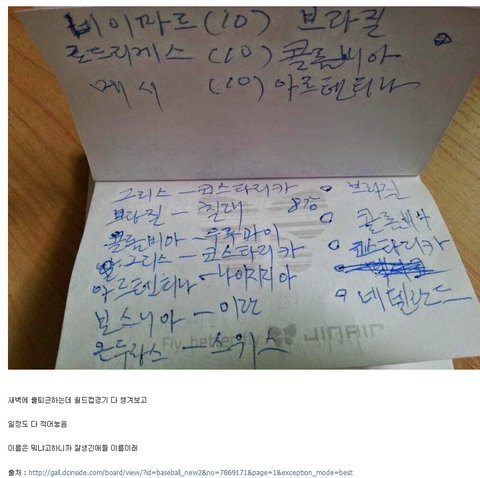 네이마르 (10) 브라질
로드리게스 (10) 콜롬비아
메시 (10) 아르텐티나
그리스 - 코스타리카
브라질 - 칠레 8강
콜롬비아 - 우루과이
그리스 - 코스타리카
아르텐티나 - 나이지리아
보스니아 - 이란
온두라스 - 스위스
브라질
콜롬비아
코스타리카
네델란드
Fly, better fly JINAIR
새벽에 출퇴근하는데 월드컵경기 다 챙겨보고
일정도 다 적어놓음
이름은 뭐냐고하니까 잘생간애들 이름이래
출처 : http://gall.dcinside.com/board/view/?id=baseball_new2&no=7869171&page=1&exception_mode=best